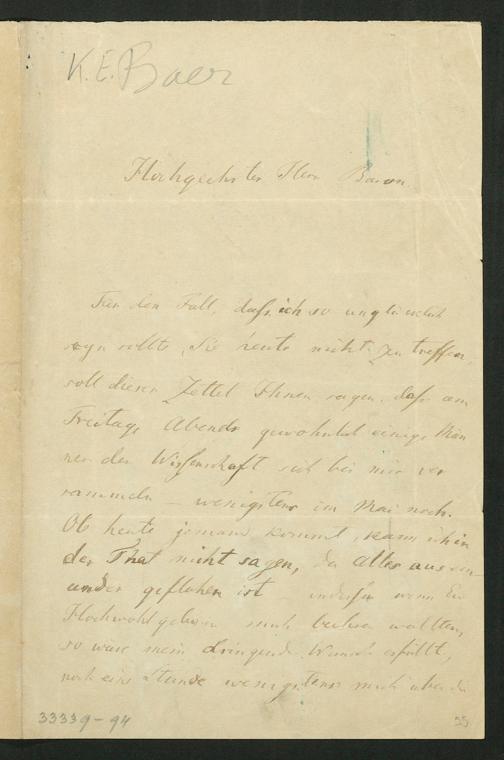 K. E. Baer
Hochgeehrter Herr Baron
Für den Fall, daſs ich so unglücklich
seyn sollte, Sie heute nicht zu treffen,
soll dieser Zettel Ihnen sagen, daſs am
Freitag Abends gewöhnlich einige Män
ner der Wiſsenschaft sich bei mir ver
sammeln – wenigstens im Mai noch.
Ob heute jemand kommt, kann ich in
der That nicht sagen, da alles ausein
ander geflohen ist – indeſsen wenn Ew
Hochwohlgeboren mich beehren wollten,
so wäre mein dringender Wunsch erfüllt,
noch eine Stunde wenigstens mich über die
33339-94